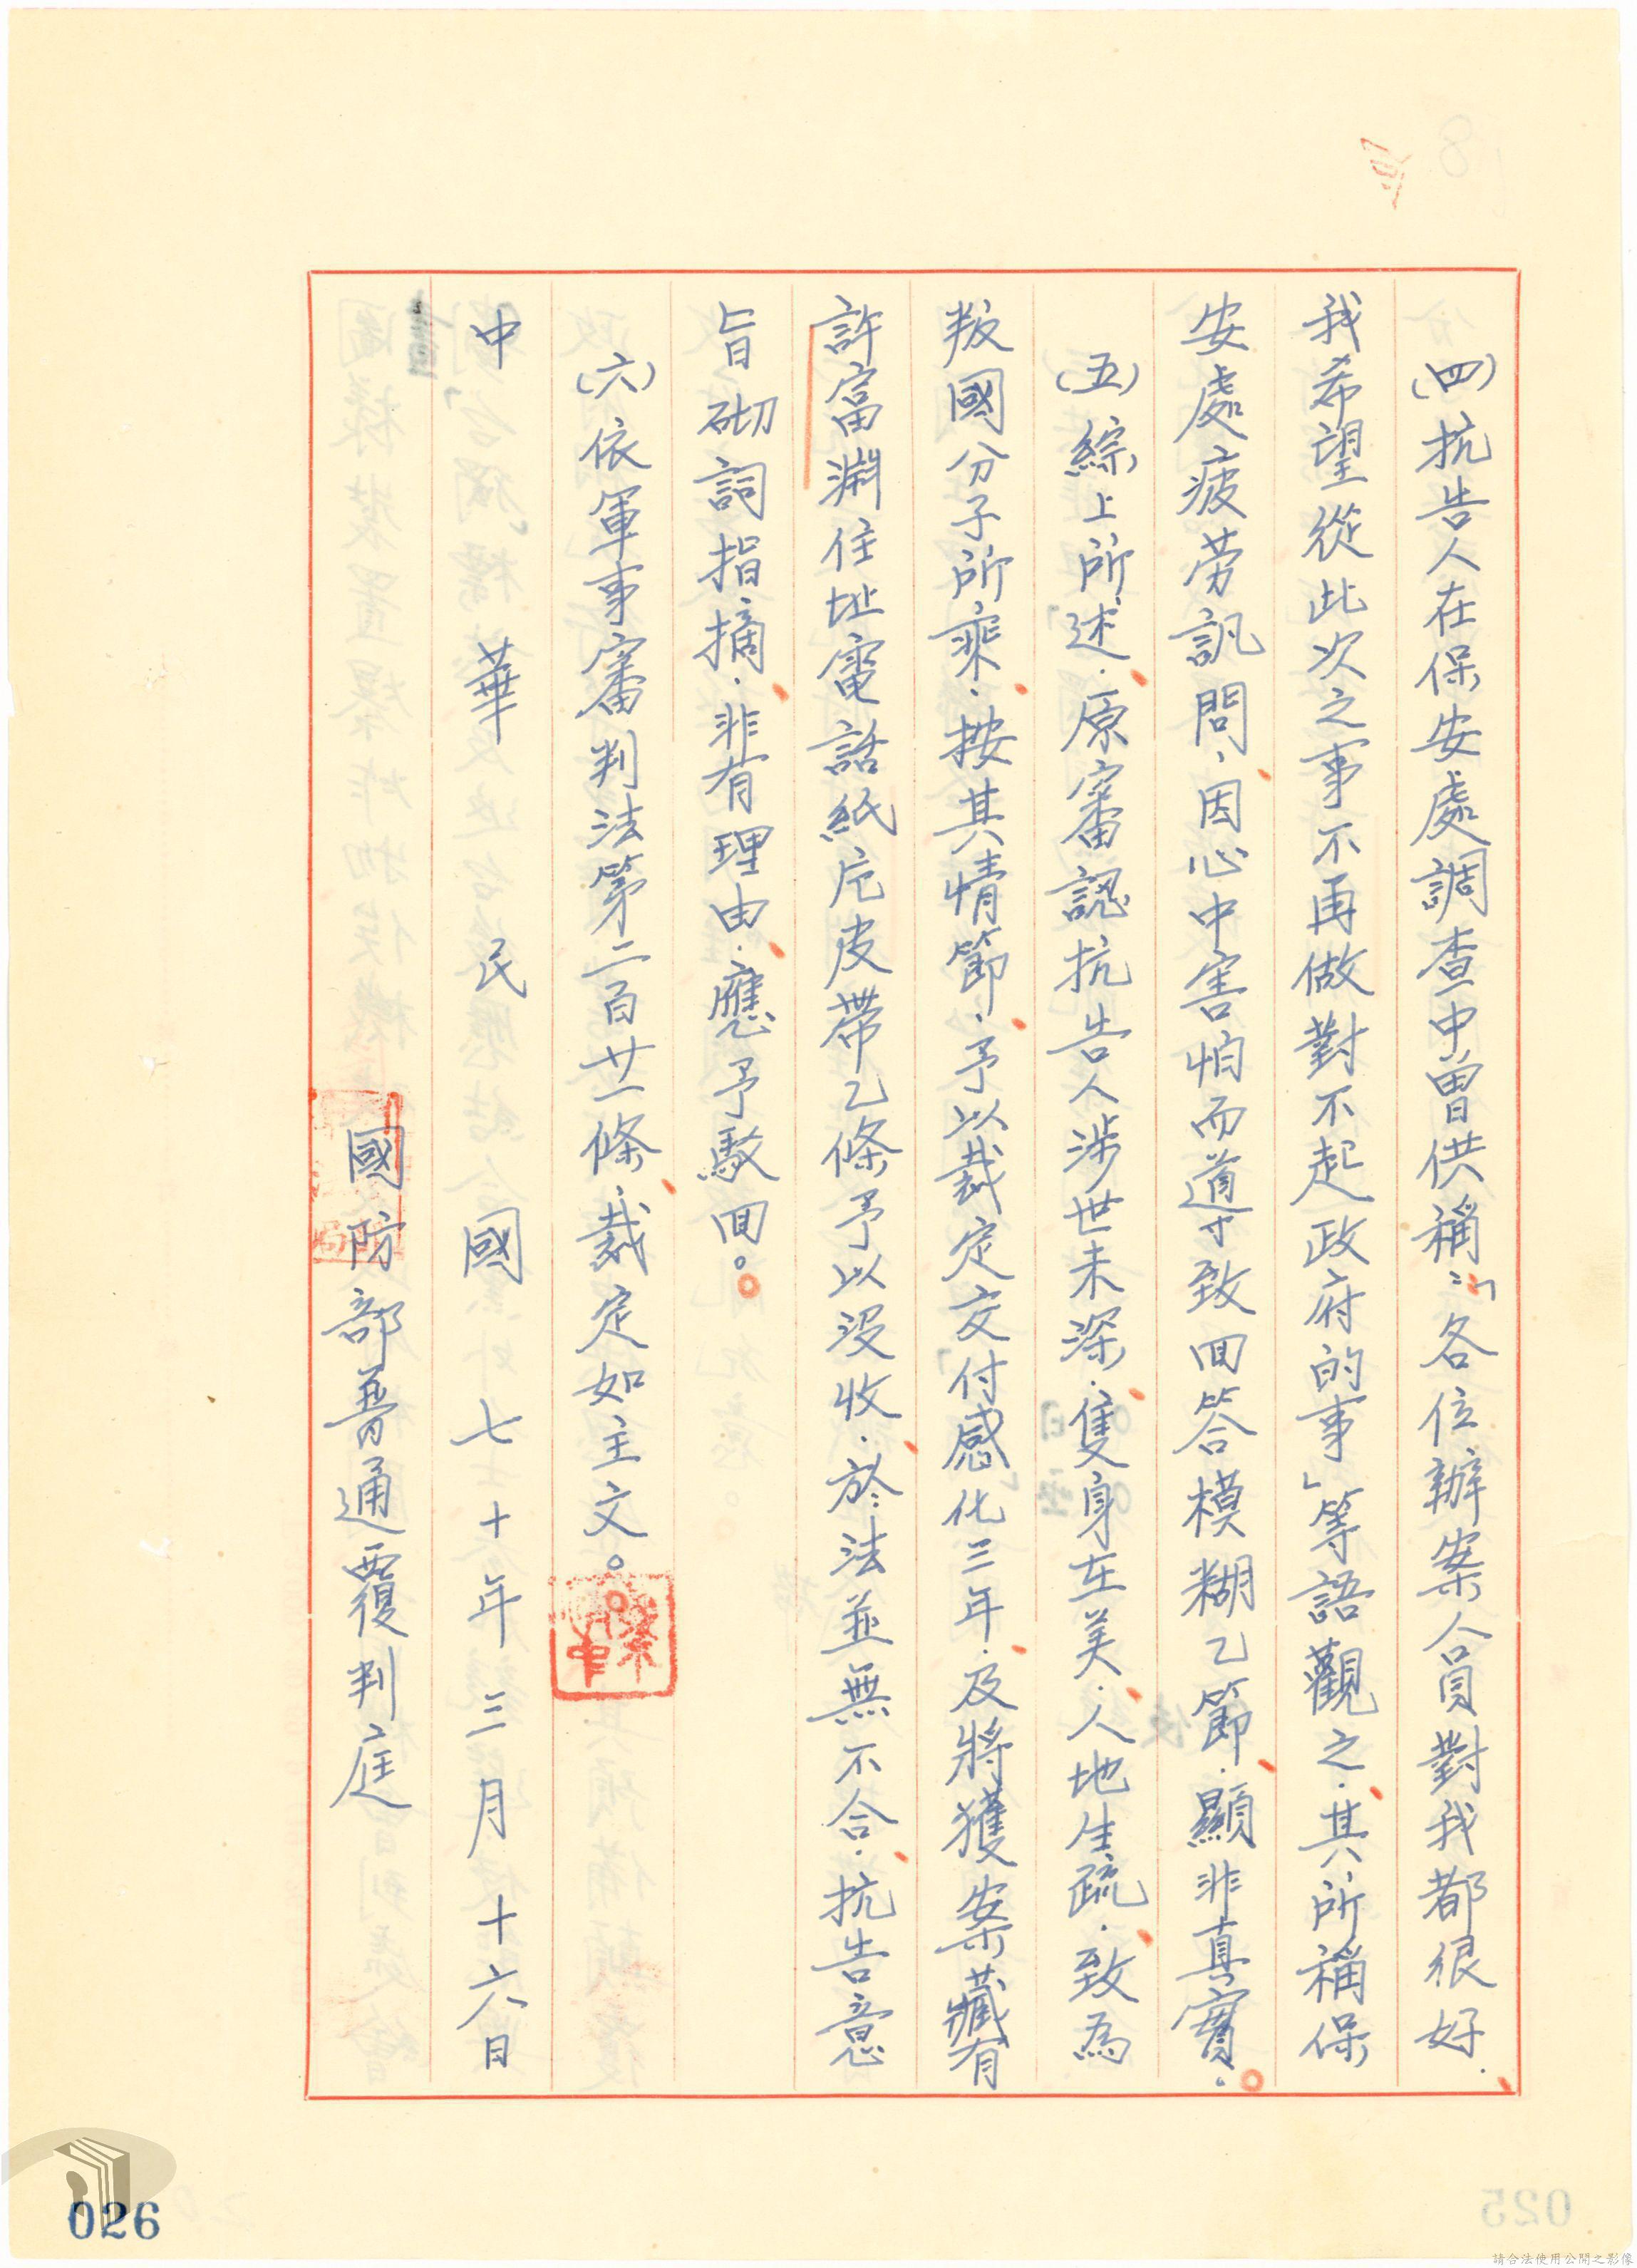 (四)抗告人在保安處調查中曾供稱:「各位辦案人員對我都很好.
我希望從此次之事不再做對不起政府的事」等語觀之.其所稱保
安處疲劳訊問,因心中害怕而導致回答模糊乙節.顯非真實.
(五)綜上所述.原審認抗告人涉世未深.隻身在美.人地生疏.致為
叛國分子所乘.按其情節.予以裁定交付感化三年.及將獲案藏有
許富渊住址電話紙片皮帶乙條予以沒收.於法並無不合.抗告意
旨砌詞指摘.非有理由.應予駁回。
(六)依軍事審判法第二百廿一條.裁定如主文。
中華民國七十年三月十六日
國防部普通覆判庭
026
025
請合法使用公開之影像